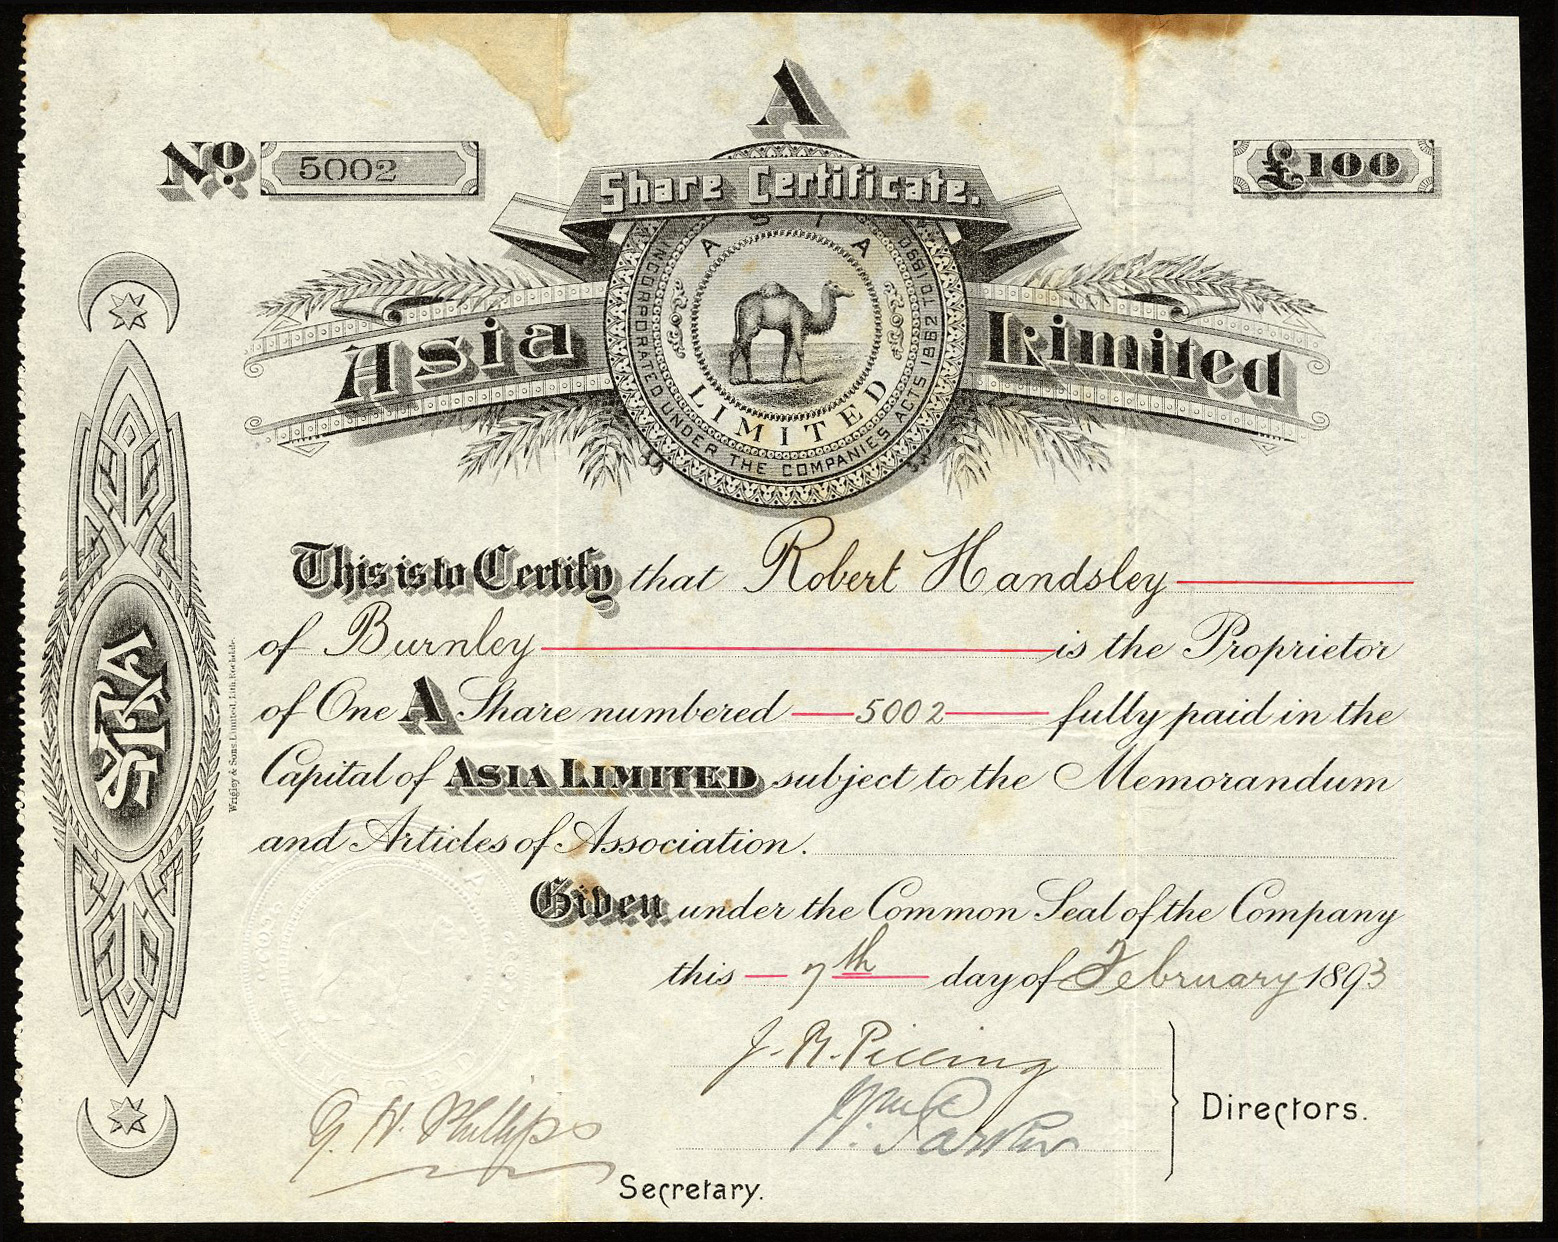 A
No. 5002
Share Certificate.
£100
Asia Limited
ASIA
LIMITED
INCORPORATED UNDER THE COMPANIES ACTS 1862 TO 1890
This is to Certify that Robert Handsley
of Burnley is the Proprietor
of One A Share numbered 5002 fully paid in the
Capital of ASIA LIMITED subject to the Memorandum
and Articles of Association.
Given under the Common Seal of the Company
this 7th day of February 1893
J. R. Pilling
Wm
H. Parker
Directors.
G. H. Phillips
Secretary.
Wrigley & Sons Limited, Lith. Rochdale.
ASIA